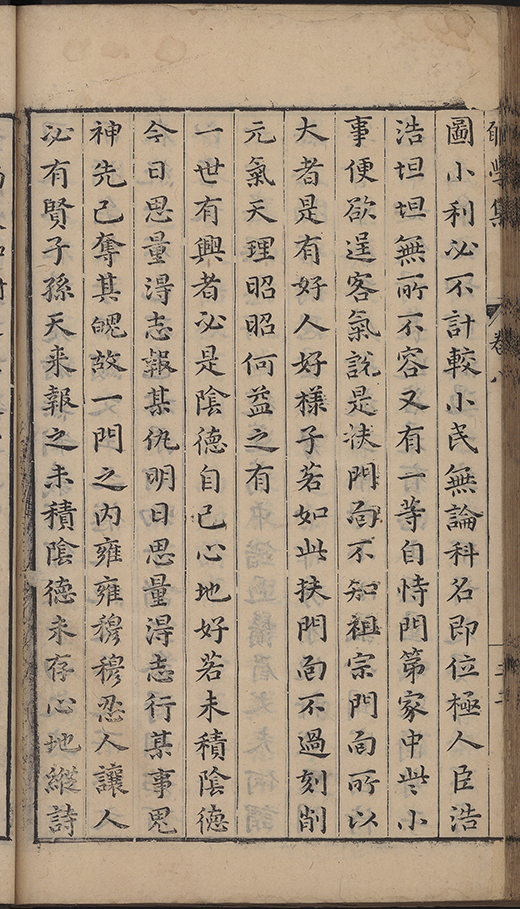 學集
卷八
圖小利必不計較小民無論科名即位極人臣浩
浩坦坦無所不容又有一等自恃門第家中些小
事便欲逞客氣說是扶門面不知祖宗門面所以
大者是有好人好樣子若如此扶門面不過刻削
元氣天理昭昭何益之有
一世有興者必是陰德自己心地好若未積陰德
今日思量淂志報某仇明日思量淂志行某事鬼
神先已奪其魄故一門之內雍雍穆穆忍人讓人
必有賢子孫天来報之未積陰德未存心地縱詩